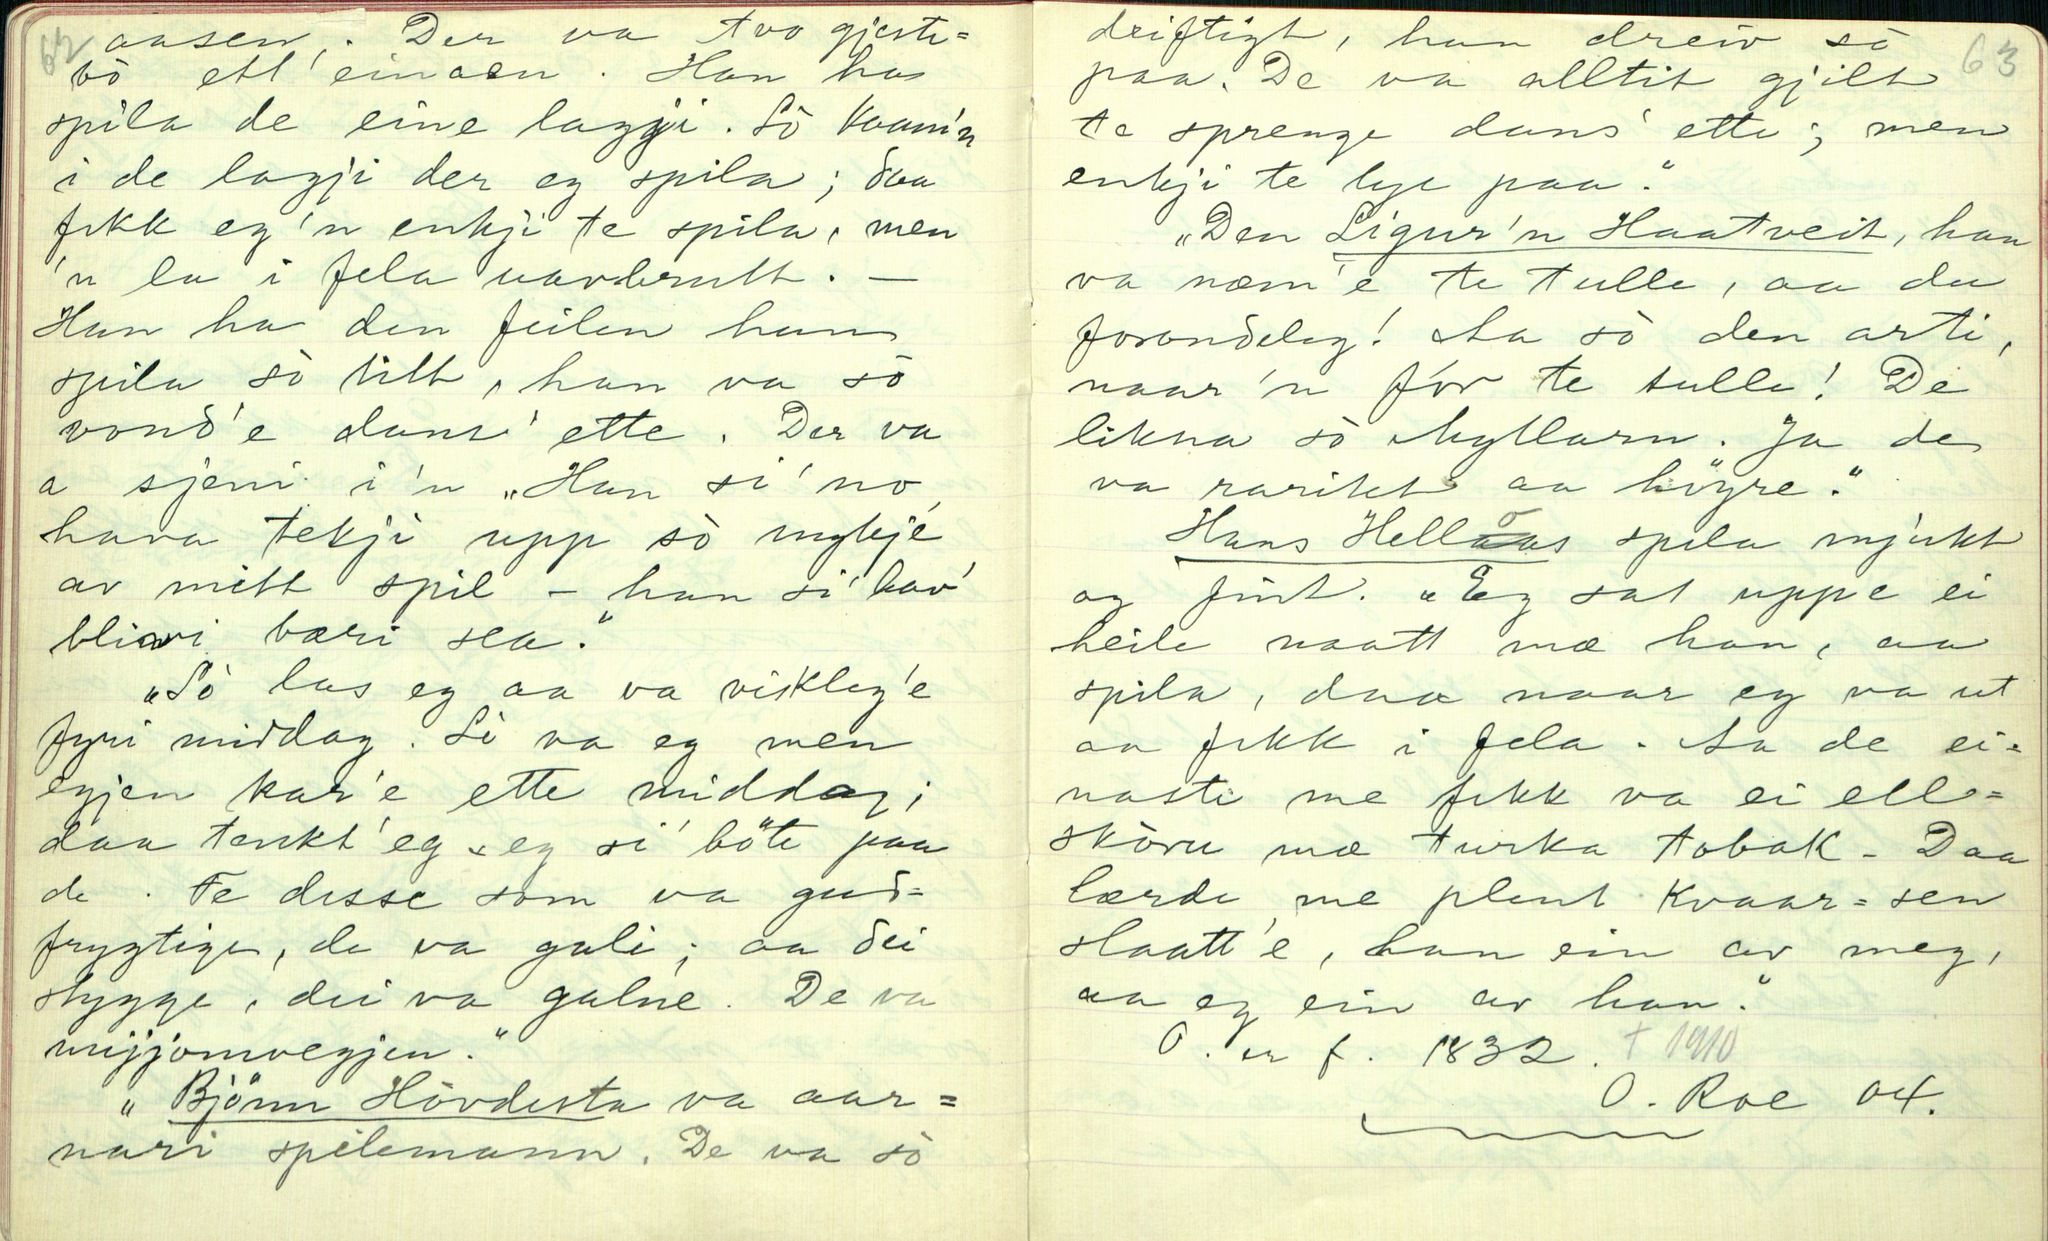 62
aasen,. Der va tvo gjeste-
bò ett' einaen. Han ha
spila de eine laggji. Sò kvam'n
i de lagji der eg spila; daa
fekk eg 'n enkji te spila, men
'n la i fela uavbrutt. —
Han ha den feilen han
spila sò litt, han va sò
vond'e dans' ette. Der va
a sjeni i'n „Han si' no
hava tekji upp sò mykje
av mitt spil - han si' hav'
blivi bæri sea."
„Sò las eg aa va viskleg'e
fyri middag. Sò va eg men
egjen kar'e ette middag;
daa tenkt' eg, eg si' böte paa
de. Te disse som va gud-
frygtige, de va gali; aa dei
stygge, dei va galne. De va
mijjomvegjen."
„Björnn Hòvdesta va aar-
nari spelemann. De va sò
63
driftigt, han dreiv sò
paa. De va alltit gjilt
te sprenge dans' ette; men
enkji te lye paa."
„Den Sigur'n Haatveit, han
va næm'e te tulle, aa du
forondeleg! Aa sò den arti,
naar'n fór te tulle! De
likna sò Myllarn. Ja de
va rarikt aa höyre."
Hans Hellòs spela mjukt
og fint. „Eg sat uppe ei
heile naatt mæ han, aa
spila, daa naar eg va ut
aa fekk i fela. Aa de ei-
naste me fekk va ei ell-
skòru mæ turka tobak - Daa
lærde me plent kvaar-sen
slaatt'e, han ein av meg,
aa eg ein av han."
O. er f. 1832. † 1910
O. Roe 04.